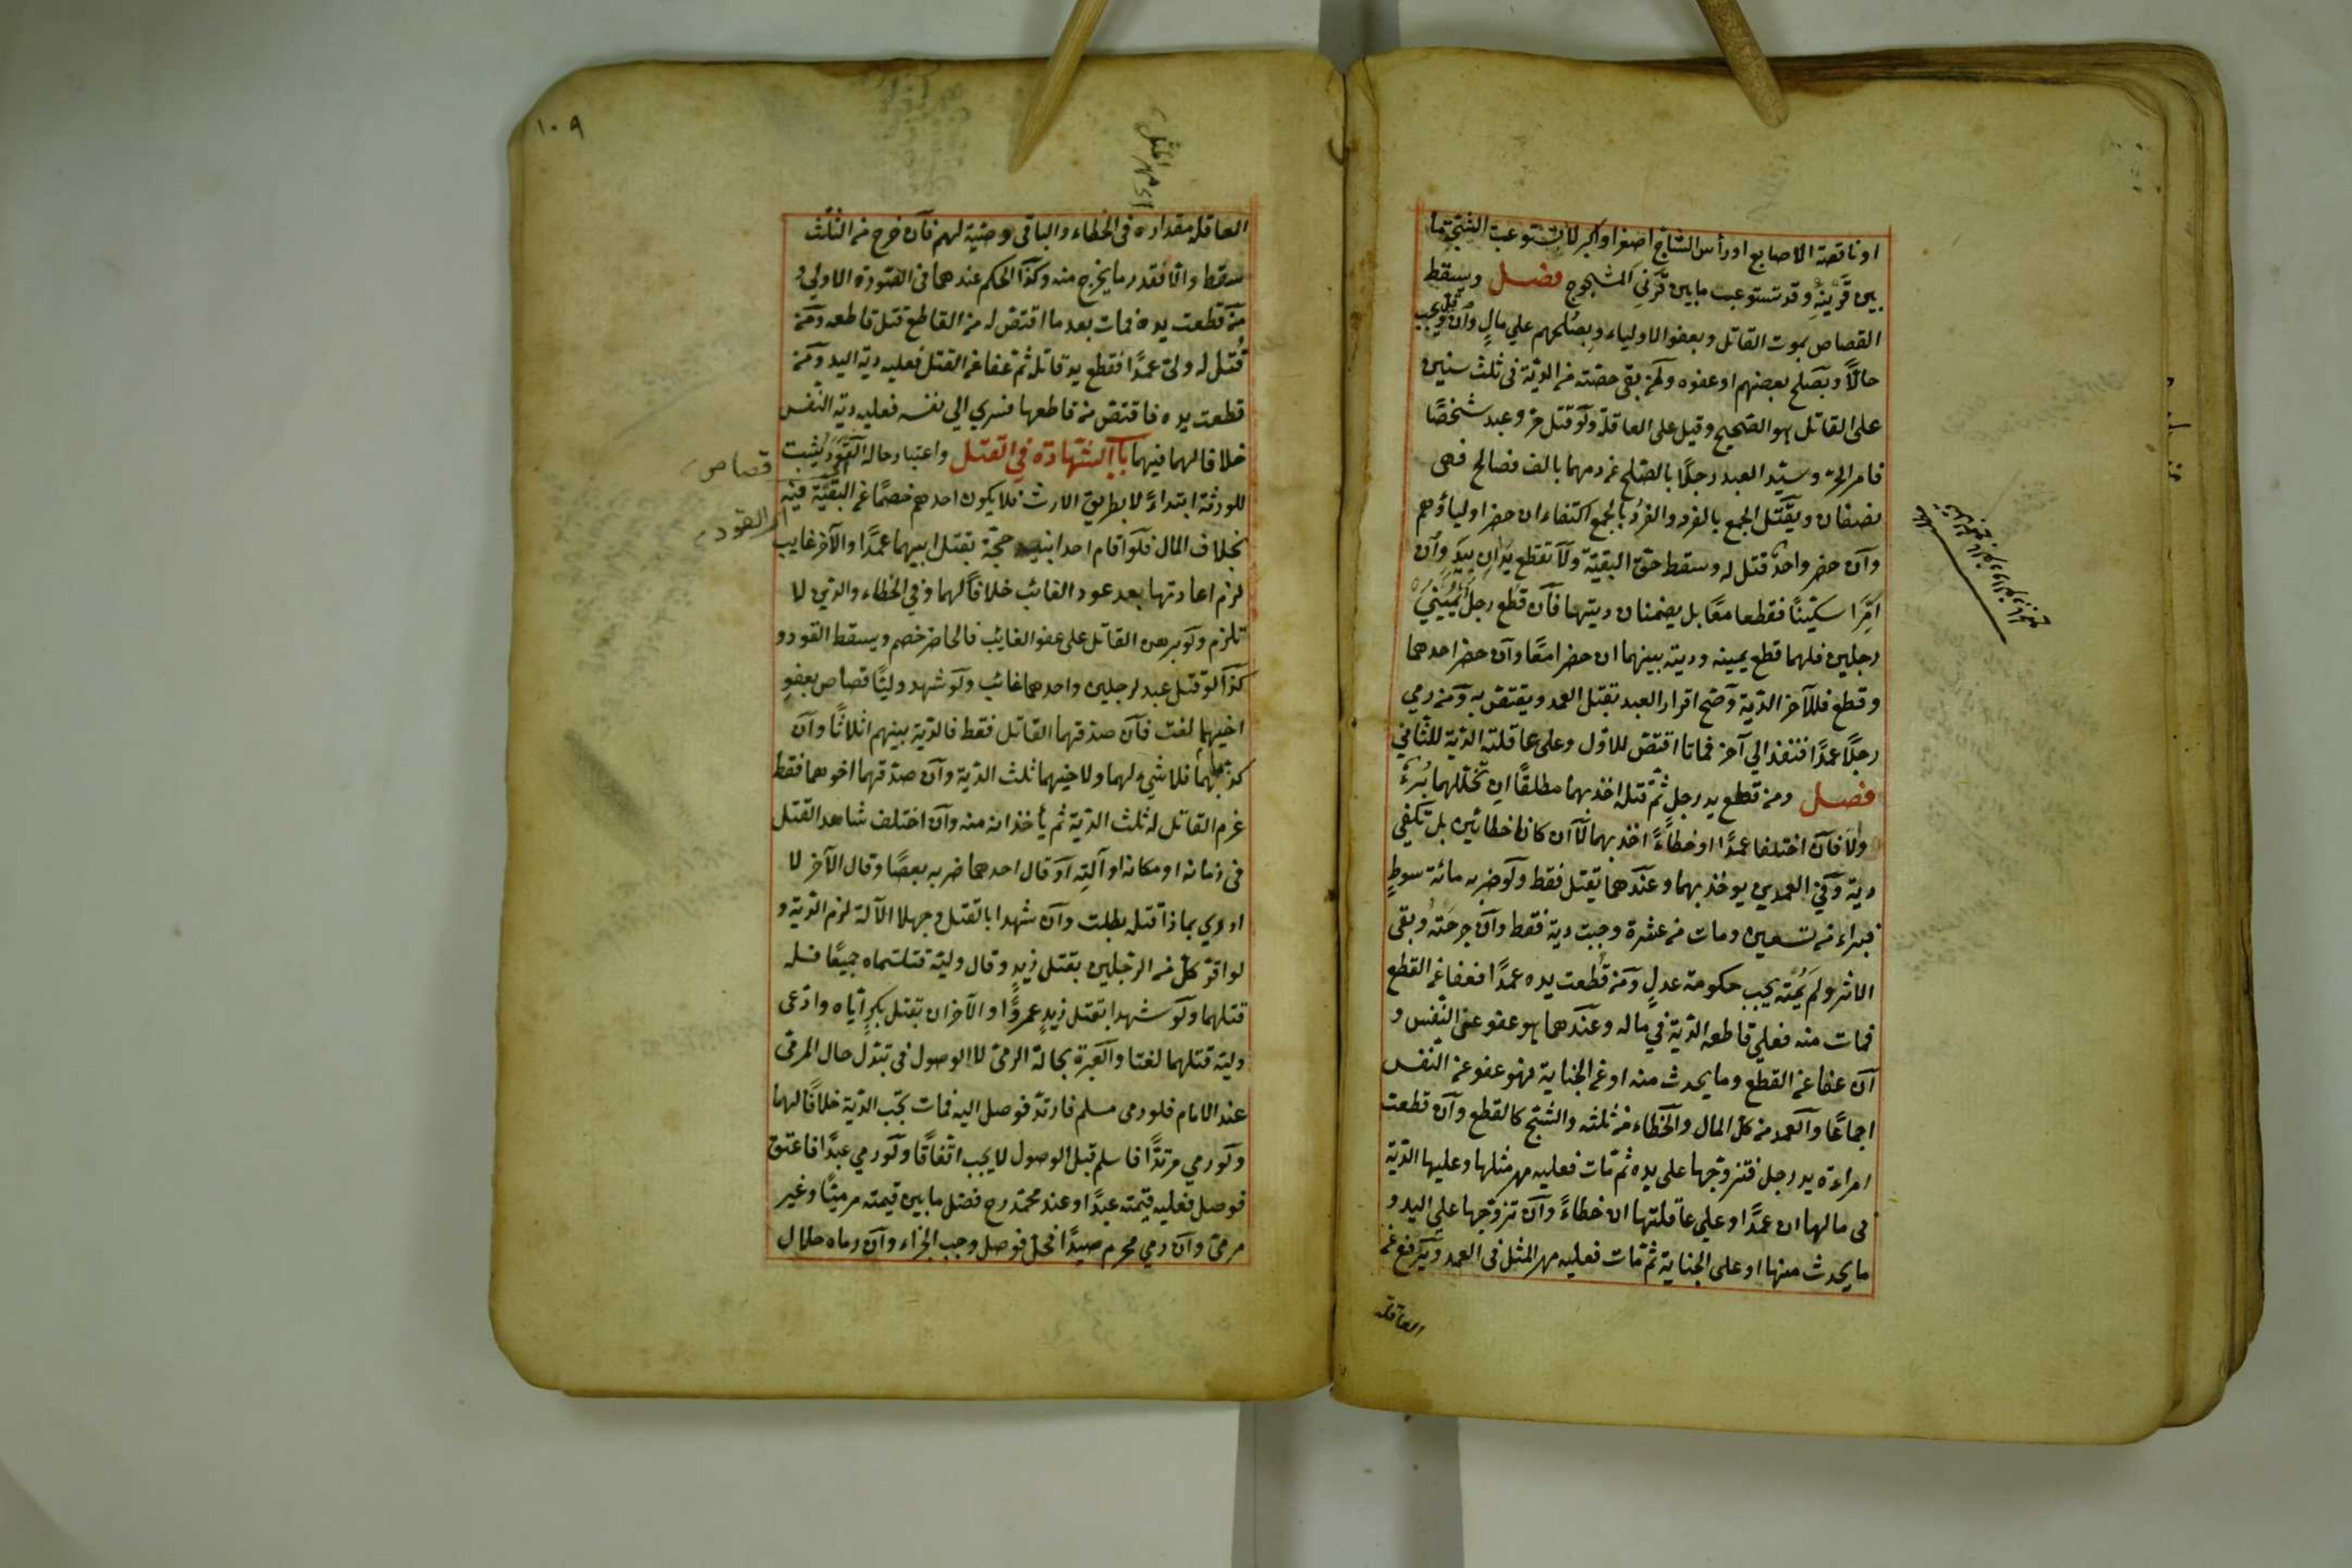 او ناقصة الاصابع او رأس الشاج اصغر او اكبر لا ان تستوعب الشجة ما
بين قرنيه وقد تستوعب ما بين قرني المشجوج فصل ويسقط
القصاص بموت القاتل وبعفو الاولياء وبصلحهم على مال وان قل ويجب
حالا وبصلح بعضهم او عفوه ولمن بقى حصته من الدية فى ثلث سنين
على القاتل هو الصحيح وقيل على العاقلة ولو قتل حر وعبد شخصا
فامر الحر وسيد العبد رجلا بالصلح عن دمهما بالف فصالح فهى
نصفان ويقتل الجمع بالفرد والفرد بالجمع اكتفاء ان حضر اولياؤهم
وان حضر واحد قتل له وسقط حق البقية ولا تقطع يدان بيد وان
امرا سكينا فقطعا معا بل يضمنان ديتها فان قطع رجل يمينى
رجلين فلهما قطع يمينه ودية بينهما ان حضرا معا وان حضر احدهما
وقطع فللآخر الدية وصح اقرار العبد بقتل العمد ويقتص به ومن رمي
رجلا عمدا فنفذ الي آخر فماتا اقتص للاول وعلى عاقلته الدية للثاني
فصل ومن قطع يد رجل ثم قتله اخذ بهما مطلقا ان تخللهما برء
والا فان اختلفا عمدا او خطاء اخذ بهما لا ان كانا خطائين بل تكفي
دية وفي العمدين يوخذ بهما وعندهما يقتل فقط ولو ضربه مائة سوط
فبراء من تسعين ومات من عشرة وجبت دية فقط وان جرحته وبقى
الاثر ولم يمته يجب حكومة عدل ومن قطعت يده عمدا فعفا عن القطع
فمات منه فعلي قاطعه الدية في ماله وعندهما هو عفو عن النفس و
ان عفا عن القطع وما يحدث منه او عن الجناية فهو عفو عن النفس
اجماعا والعمد من كل المال والخطاء من ثلثه والشج كالقطع وان قطعت
امراءة يد رجل فتزوجها على يده ثم مات فعليه مهر مثلها وعليها الدية
فى مالها ان عمدا وعلي عاقلتها ان خطاء وان تزوجها على اليد و
ما يحدث منها او على الجناية ثم مات فعليه مهر المثل فى العمد ويرفع عن
العاقلة
١٠٩
اى مهر المثل
العاقلة مقداره فى الخطاء والباقى وصية لهم فان خرج من الثلث
سقط والا فقدر ما يخرج منه وكذا الحكم عندهما فى الصورة الاولي و
من قطعت يده فمات بعد ما اقتص له من القاطع قتل قاطعه ومن
قتل له ولى عمدا فقطع يد قاتله ثم عفا عن القتل فعليه دية اليد ومن
قطعت يده فاقتص من قاطعها فسري الي نفسه فعليه دية النفس
خلافا لهما فيهما باب الشهادة في القتل واعتبار حاله القود يثبت
قصاص
للورثة ابتداء لا بطريق الارث فلا يكون احدهم خصما عن البقية فيه
اى القود
بخلاف المال فلو اقام احد ابنيه حجة بقتل ابيهما عمدا والآخر غايب
لزم اعادتها بعد عود الغائب خلافا لهما وفي الخطاء والدين لا
تلزم ولو برهن القاتل على عفو الغايب فالحاضر خصم ويسقط القود و
كذا لو قتل عبد لرجلين واحدهما غائب ولو شهد وليا قصاص بعفو
اخيهما لغت فان صدقهما القاتل فقط فالدية بينهم اثلاثا وان
كذبهما فلا شيء لهما ولاخيهما ثلث الدية وان صدقهما اخوهما فقط
غرم القاتل له ثلث الدية ثم يأخذانه منه وان اختلف شاهدا القتل
في زمانه او مكانه او آلته او قال احدهما ضربه بعصا وقال الآخر لا
ادري بماذا قتله بطلت وان شهدا بالقتل وجهلا الآلة لزم الدية و
لو اقر كل من الرجلين بقتل زيد وقال وليه قتلتماه جميعا فله
قتلهما ولو شهدا بقتل زيد عمروا والآخران بقتل بكر اياه وادعى
وليه قتلهما لغتا والعبرة بحالة الرمى لا الوصول فى تبدل حال المرمى
عند الامام فلو رمى مسلم فارتد فوصل اليه فمات تجب الدية خلافا لهما
ولو رمي مرتدا فاسلم قبل الوصول لا يجب اتفاقا ولو رمي عبدا فاعتق
فوصل فعليه قيمته عبدا وعند محمد رح فضل ما بين قيمته مرميا وغير
مرمى وان رمي محرم صيدا فحل فوصل وجب الجزاء وان رماه حلال